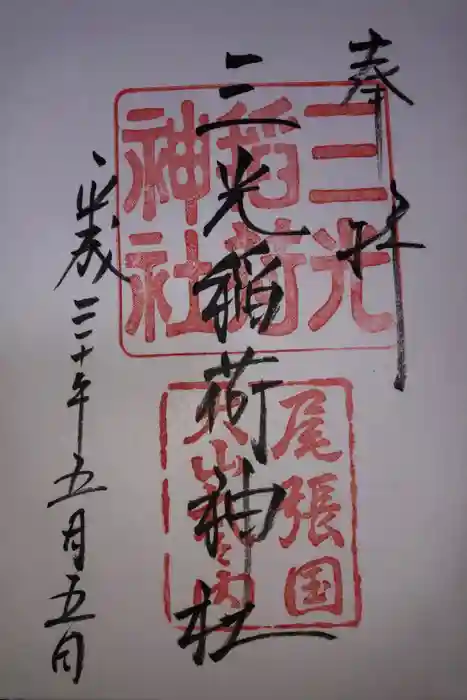 奉拝
三光稲荷神社
平成三十年五月五日
三光
稲荷
神社
尾張国
犬山 内